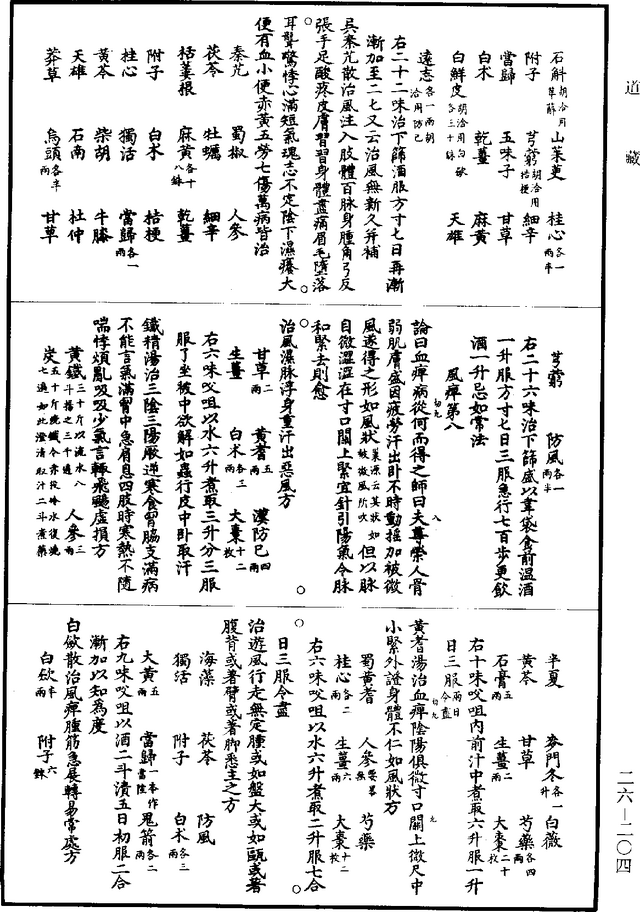 道藏
石斛胡洽用草薢 山茱萸 桂心各一兩半
附子 芎藭胡洽用桔梗 細辛
當歸 五味子 甘草
白朮 乾薑 麻黃
白鮮皮胡洽用白斂各三十銖 天雄
遠志各一兩胡洽用防己
右二十二味治下篩酒服方寸七日再漸
漸加至二七又云治風無新久并補
吳秦艽散治風注入肢體百脉身腫角弓反
張手足酸疼皮膚習習身體盡痛眉毛墮落
耳聾驚悸心滿短氣魂志不定陰下濕癢大
便有血小便赤黃五勞七傷萬病皆治
秦艽 蜀椒 人參
茯苓 牡蠣 細辛
栝蔞根 麻黃各十八銖 乾薑
附子 白朮 桔梗
桂心 獨活 當歸各一兩
黃芩 柴胡 牛膝
天雄 石南 杜仲
莽草 烏頭各半兩 甘草
芎藭 防風各一兩半
右二十六味治下篩盛以韋袋食前溫酒
一升服方寸七日三服急行七百步更飲
酒一升忌如常法
風痺第八
論曰血痺病從何而得之師曰夫尊榮人骨
弱肌膚盛因疲勞汗出卧不時動搖加被微
風遂得之形如風狀巢源云其狀如被微風所吹但以脉
自微澀澀在寸口關上緊宜針引陽氣令脉
和緊去則愈
治風濕脉浮身重汗出惡風方
甘草二兩 黃耆五兩 漢防己四兩
生薑 白朮各三兩 大棗十二枚
右六味㕮咀以水六升煮取三升分三服
服了坐被中欲解如蟲行皮中卧取汗
鐵精湯治三陰三陽厥逆寒食胷脇支滿病
不能言氣滿胷中急肩息四肢時寒熱不隨
喘悸煩亂吸吸少氣言輒飛颺虛損方
黃鐵三十斤以流水八斗揚之三千遍 人參三兩
炭五十斤燒鐵令赤投冷水復燒七遍如此澄清取汁二斗煮藥
半夏 麥門冬各一升 白薇
黃芩 甘草 芍藥各四兩
石膏五兩 生薑二兩 大棗二十枚
右十味㕮咀內前汁中煮取六升服一升
日三服兩日令盡
黃耆湯治血痺陰陽俱微寸口關上微尺中
小緊外證身體不仁如風狀方
蜀黃耆 人參要畧無 芍藥
桂心各二兩 生薑六兩 大棗十二枚
右六味㕮咀以水六升煮取二升服七合
日三服令盡
治遊風行走無定腫或如盤大或如甌或著
腹背或著臂或著脚悉主之方
海藻 茯苓 防風
獨活 附子 白朮各三兩
大黃五兩 當歸一本作當陸 鬼箭各二兩
右九味㕮咀以酒二斗漬五日初服二合
漸加以知為度
白斂散治風痺腫筋急展轉易常處方
白斂半兩 附子六銖
二六—二〇四